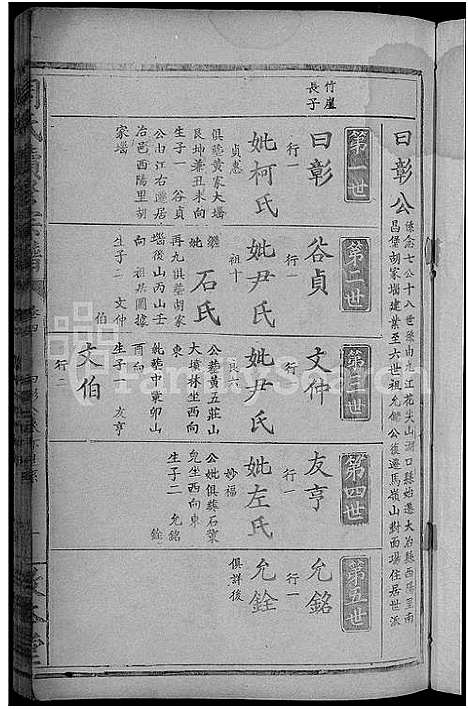 曰彰公
係念七公十八世孫由九江花尖山湖口縣始遷大冶縣西陽里南
昌堡胡家墖建業至六世祖允傑公復遷馬嶺山對面塲住居世派
第一世
竹崖
長子
曰彰
行一
妣柯氏
貞惠
俱塟黃家大墖
艮坤兼丑未向
生子一 谷貞
公由江右遷居
冶邑西陽里胡
家墖
第二世
谷貞
行一
妣尹氏
祖十
繼
妣
石氏
再九俱塟胡家
墖後山丙山壬
向 祖共圖據
生子二 文仲
伯
第三世
文仲
行一
妣尹氏
良六
公塟黃五莊山
大墳林坐西向
東
妣塟中窠卯山
酉向
生子一 友亨
文伯
行二
第四世
友亨
行一
妣左氏
妙福
公妣俱葬石窠
兒坐西向東
生子二 允銘
銓
第五世
允銘
行一
允銓
俱詳後
FamilySearch